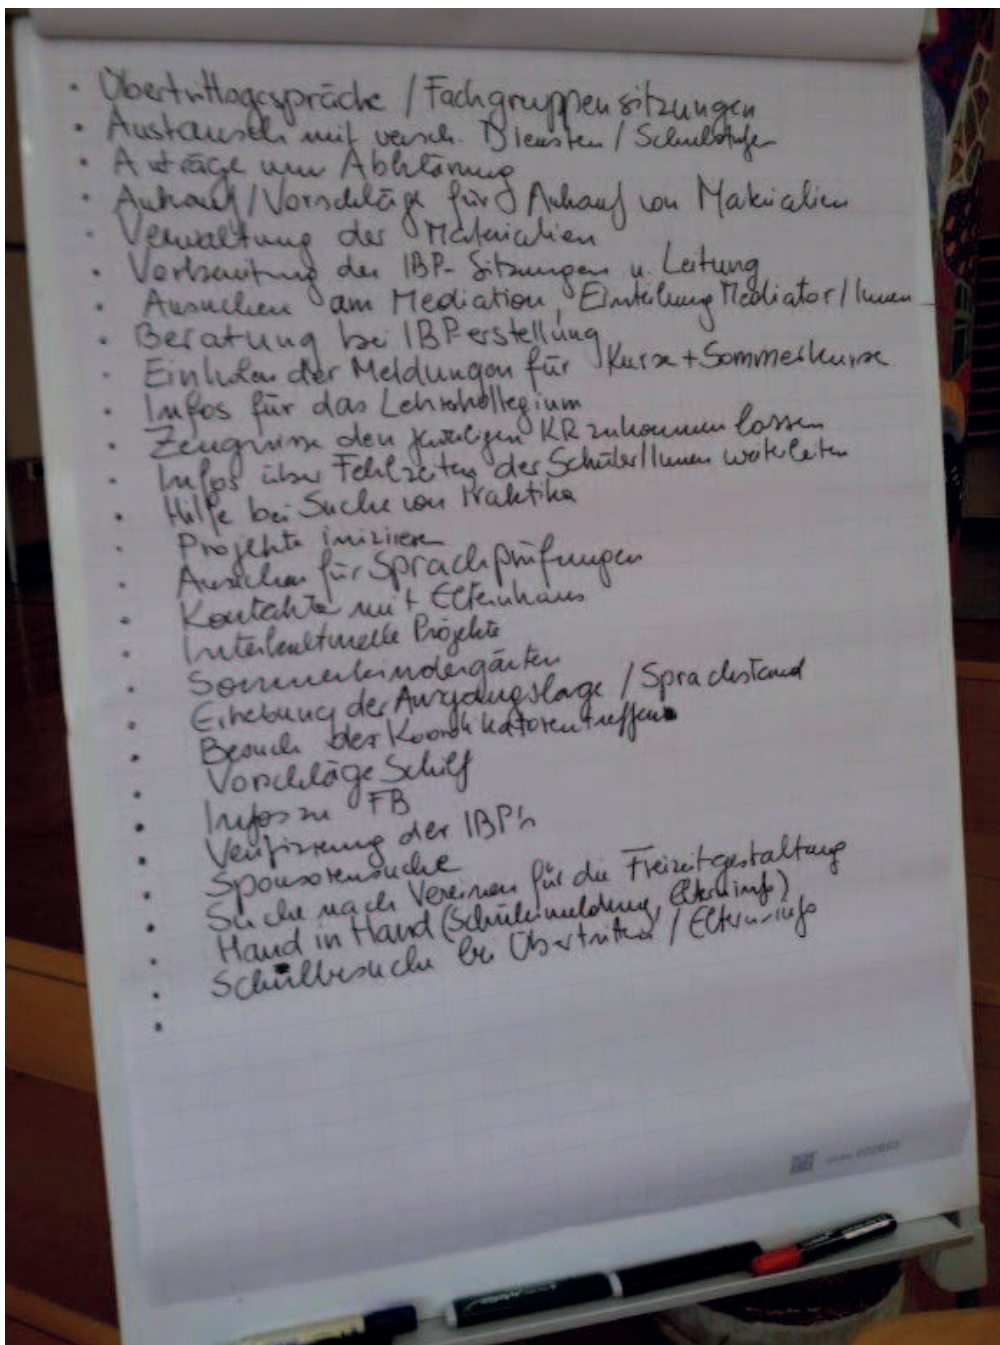 • Übertrittsgespräche / Fachgruppensitzungen
• Austausch mit versch. Diensten / Schulstufen
• Anträge um Abklärung
• Ankauf / Vorschläge für Ankauf von Materialien
• Verwaltung der Materialien
• Vorbereitung der IBP-Sitzungen u. Leitung
• Ansuchen am Mediation, Einteilung Mediator/Innen
• Beratung bei IBPerstellung
• Einholen der Meldungen für Kurse + Sommerkurse
• Infos für das Lehrerkollegium
• Zeugnisse den jeweiligen KR zukommen lassen
• Infos über Fehlzeiten der Schüler/Innen weiterleiten
• Hilfe bei Suche von Praktika
• Projekte iniziieren
• Ansuchen für Sprachprüfungen
• Kontakte mit Elternhaus
• Interkulturelle Projekte
• Sommerkindergärten
• Erhebung der Ausgangslage / Sprachstand
• Besuch der Koordinatorentreffen
• Vorschläge Schilf
• Infos zu FB
• Verifizierung der IBP's
• Sponsorensuche
• Suche nach Vereinen für die Freizeitgestaltung
• Hand in Hand (Schülermeldung, Elterninfo)
• Schulbesuche bei Übertritten / Elterninfo